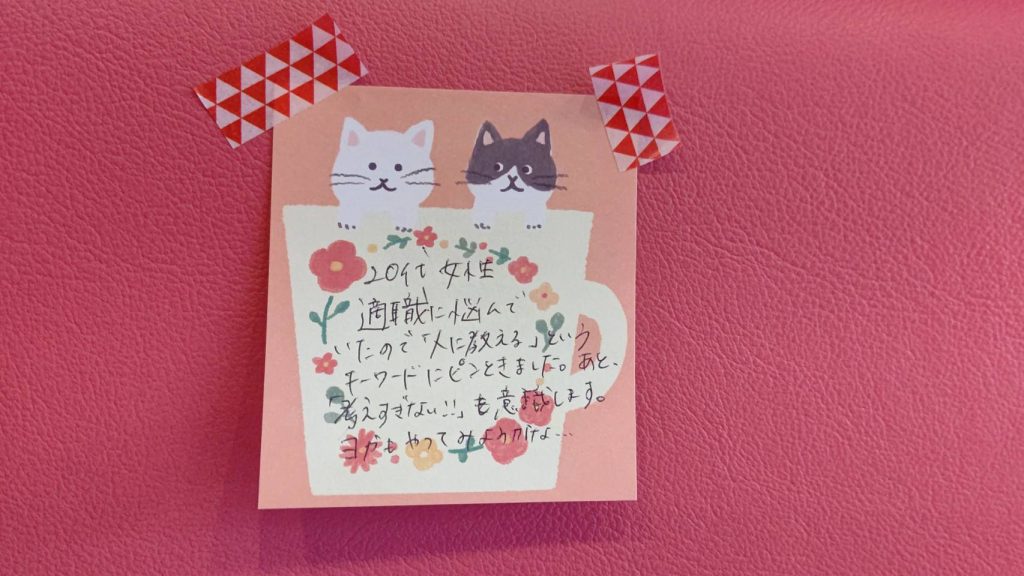 20代 女性
適職に悩んで
いたので「人に教える」という
キーワードにピンときました。あと、
「考えすぎない!!」も意識します。
ヨガもやってみようかな…